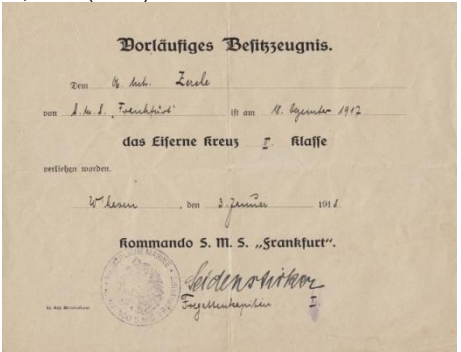 Vorläufiges Besitzzeugnis.
Dem
von S.M.S. „Frankfurt“ ist am 18. Dezember 1917
das Eiserne Kreuz II. Klasse
verliehen worden.
W'haven, den 3. Januar 1918.
Kommando S. M. S. „Frankfurt“.
Seidensticker
Fregattenkapitän